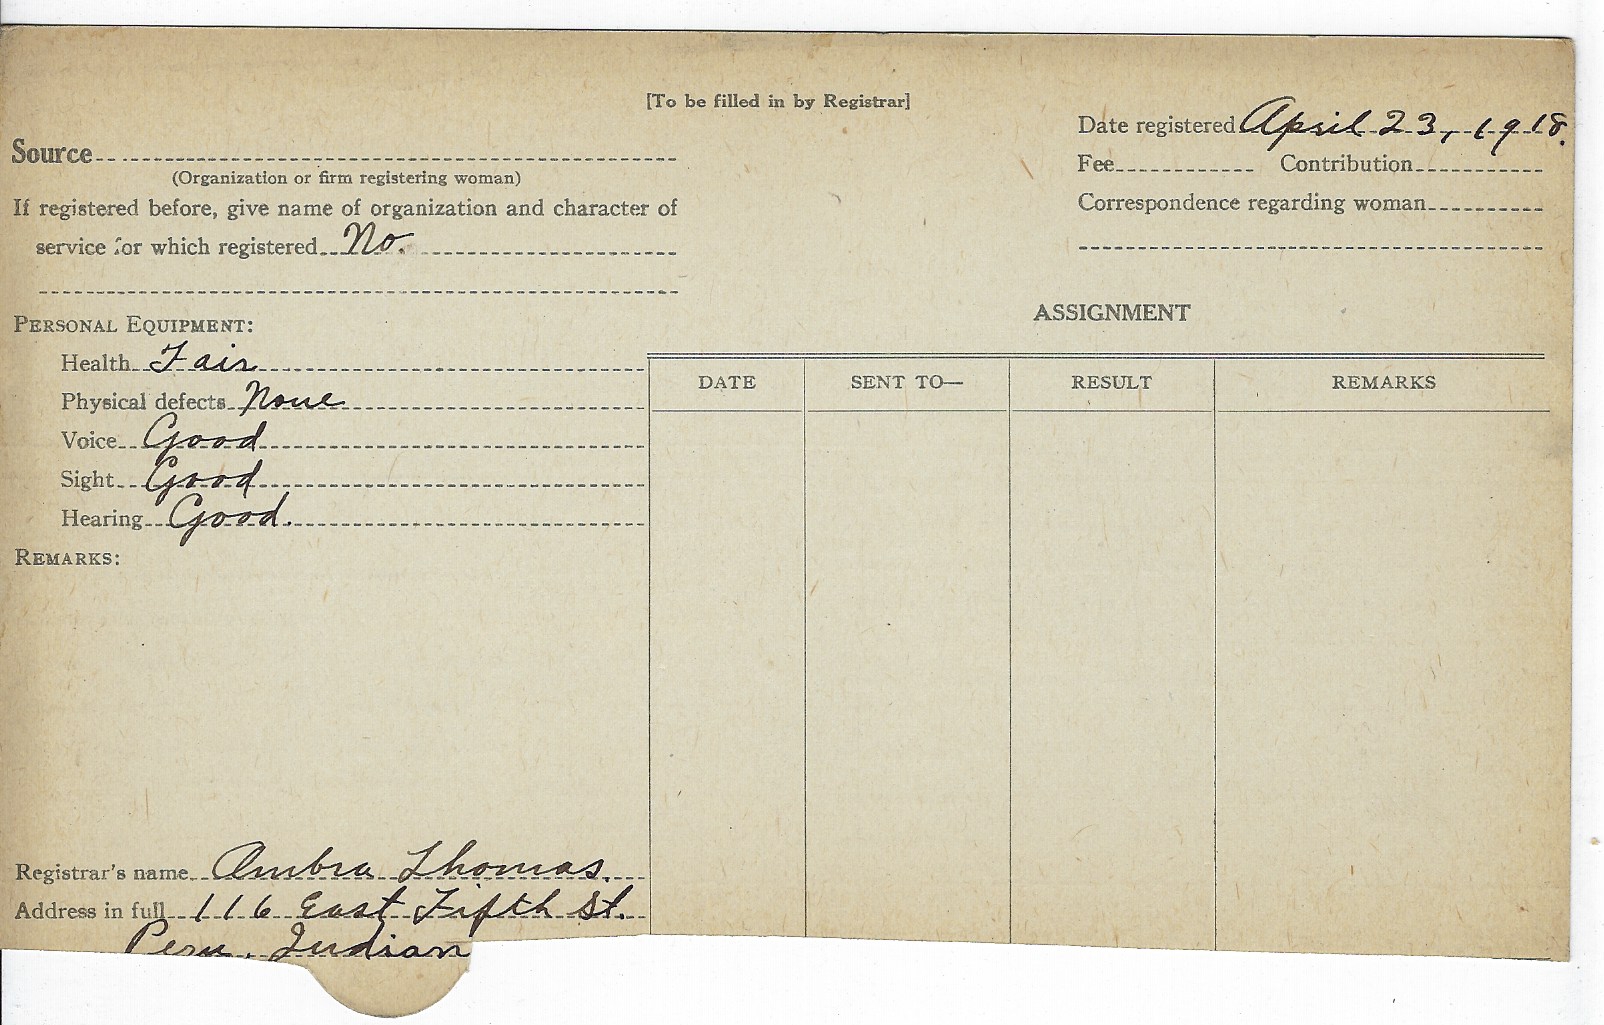 [To be filled in by Registrar]
Date registered April 23, 1918.
Source
Fee Contribution
(Organization or firm registering woman)
If registered before, give name of organization and character of
Correspondence regarding woman
service for which registered No.
PERSONAL EQUIPMENT:
ASSIGNMENT
Health Fair
Physical defects None
DATE SENT TO— RESULT REMARKS
Voice Good
Sight Good
Hearing Good.
REMARKS:
Registrar's name Ombra Thomas.
Address in full 116 East Fifth St.
Peru, Indian